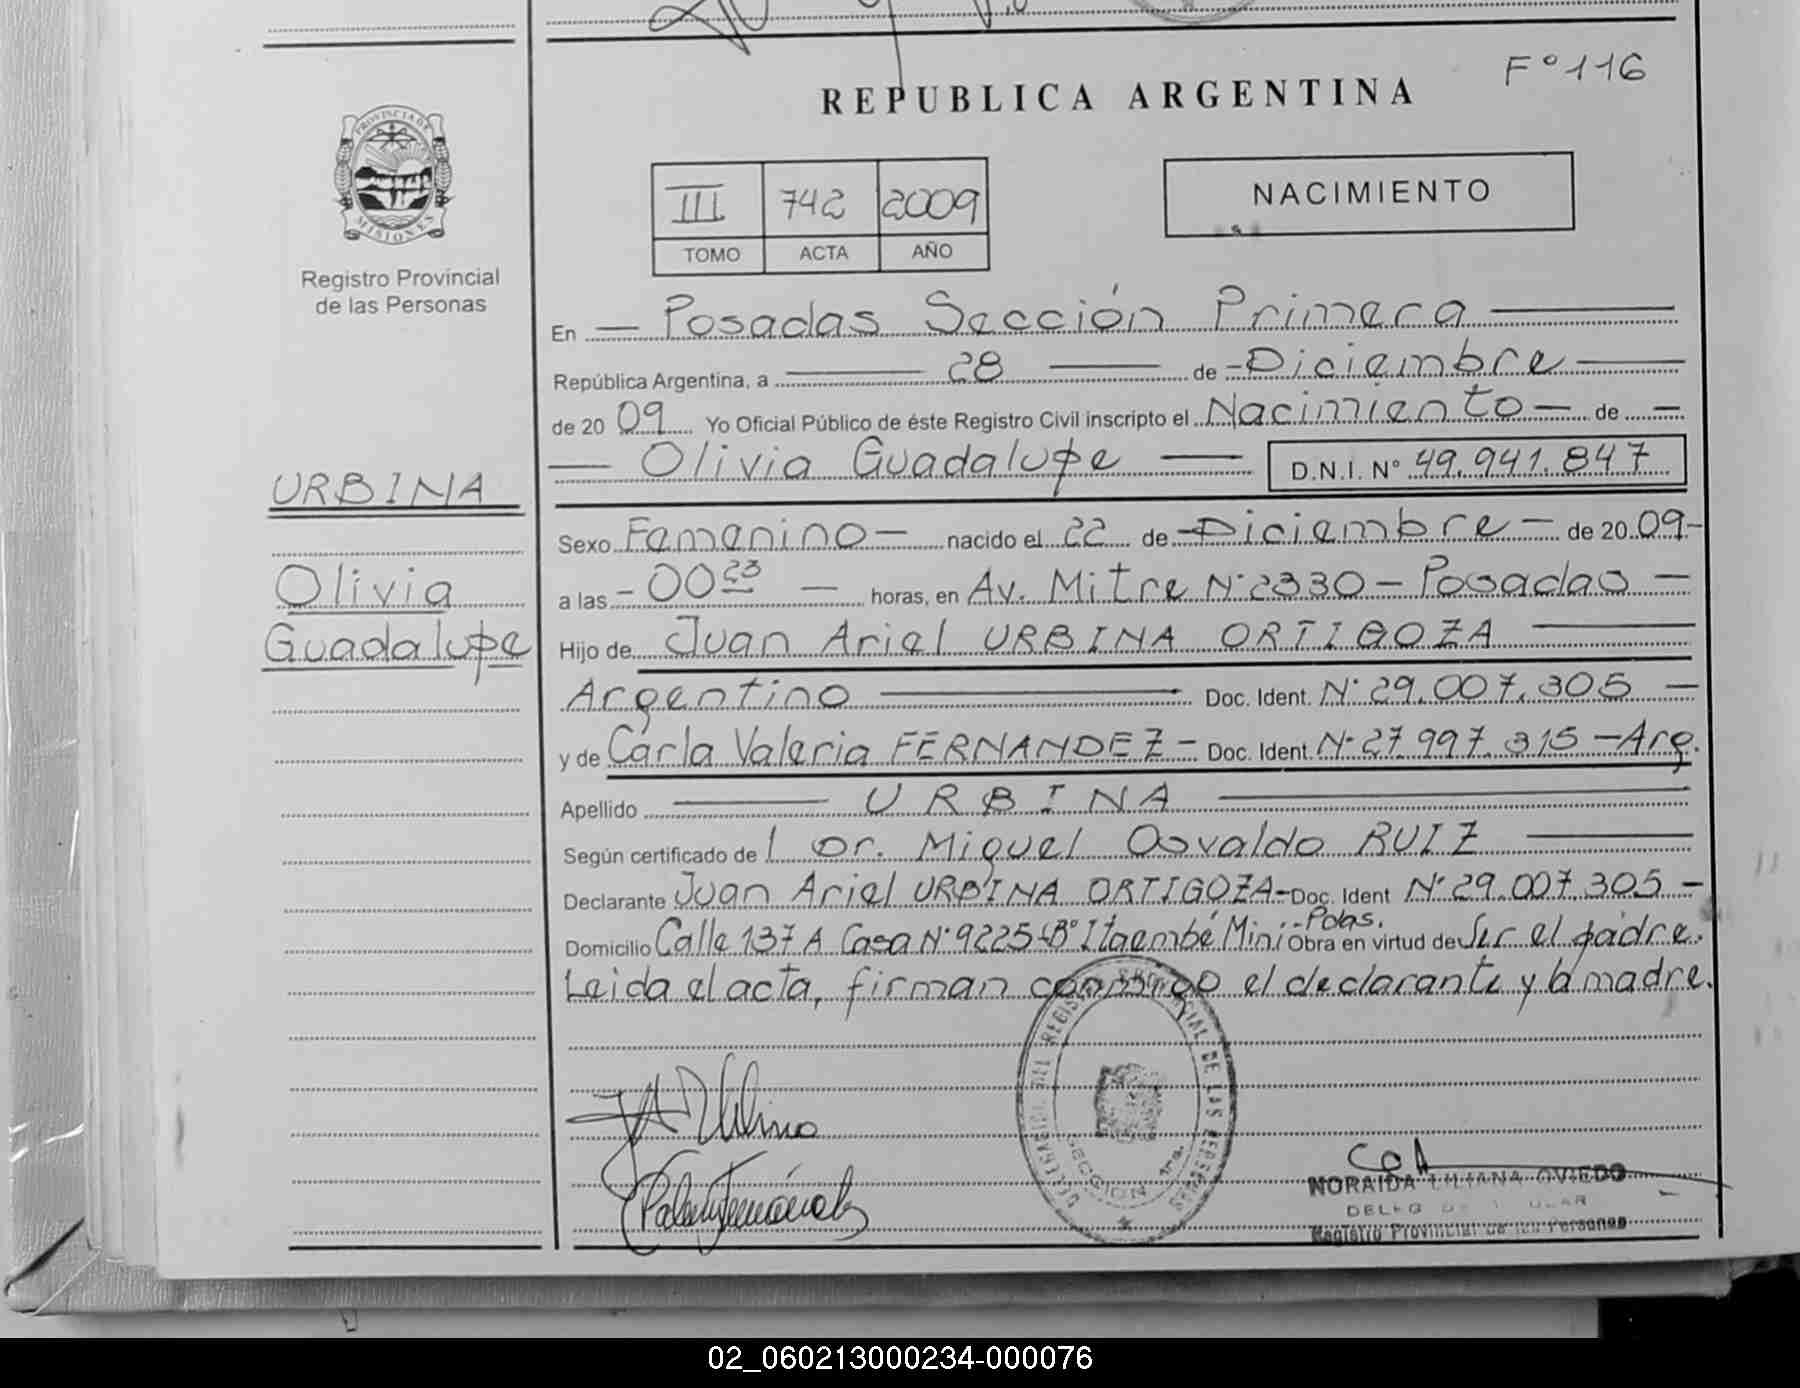 F° 116
REPUBLICA ARGENTINA
PROVINCIA DE
MISIONES
Registro Provincial
de las Personas
III 742 2009
TOMO ACTA AÑO
NACIMIENTO
En — Posadas Sección Primera —
República Argentina, a — 28 — de - Diciembre —
de 20 09 Yo Oficial Público de éste Registro Civil inscripto el Nacimiento — de —
— Olivia Guadalupe — D.N.I. N° 49.941.847
URBINA
Olivia
Guadalupe
Sexo Femenino — nacido el 22 de - Diciembre — de 20 09 -
a las - 00 23 — horas, en Av. Mitre N° 2330 - Posadas —
Hijo de Juan Ariel URBINA ORTIGOZA —
Argentino — Doc. Ident. N° 29.007.305 —
y de Carla Valeria FERNANDEZ - Doc. Ident. N° 27.997.315 - Arg.
Apellido — URBINA —
Según certificado de l Dr. Miguel Osvaldo RUIZ —
Declarante Juan Ariel URBINA ORTIGOZA - Doc. Ident N° 29.007.305 -
Domicilio Calle 137 A Casa N° 9225 - B° Itaembé Mini - Pdas. Obra en virtud de Ser el padre.
Leida el acta, firman conmigo el declarante y la madre.
SECCION 1ra.
NORAIDA LILIANA OVIEDO
Registro Provincial de las Personas
02_060213000234-000076